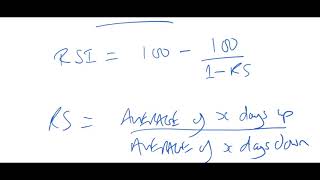 RSI = 100 - 100 / 1-RS
RS = AVERAGE of x days up / AVERAGE of x days down